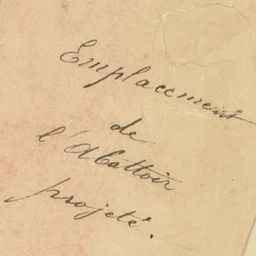 Emplacement
de
l'Abattoir
projeté.